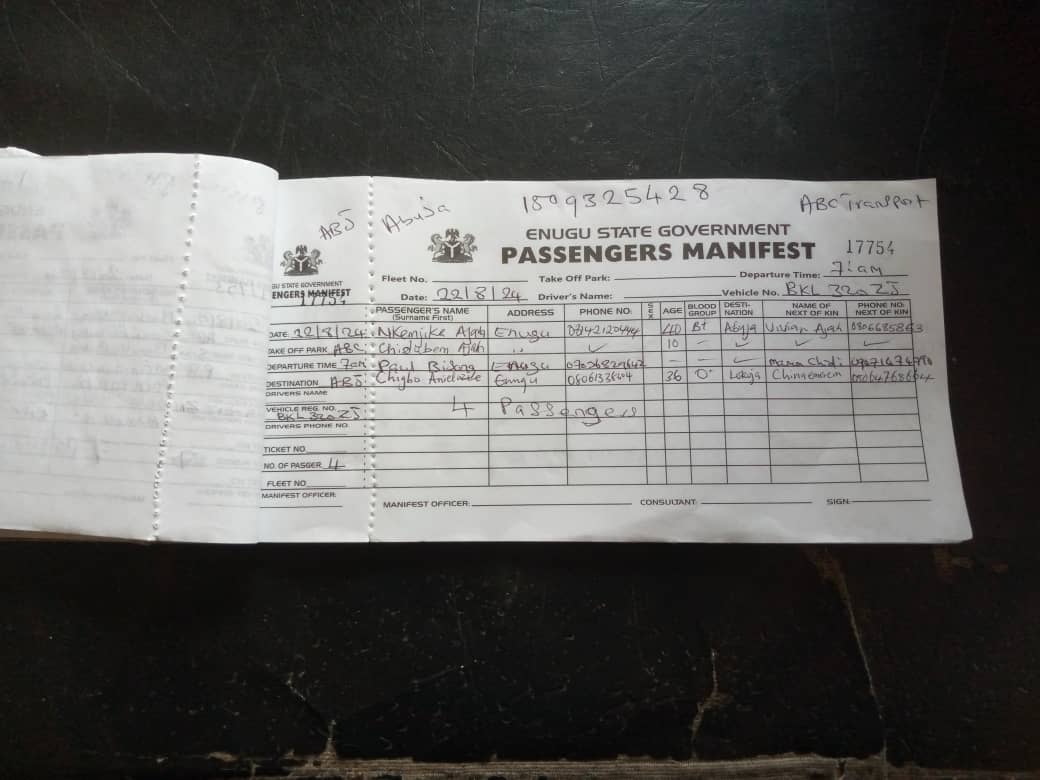 Abuja 1809325428 ABC Transport
ABJ
ENUGU STATE GOVERNMENT
PASSENGERS MANIFEST 17754
Fleet No. Take Off Park: Departure Time: 7:am
Date: 22/8/24 Driver's Name: Vehicle No. BKL 320ZJ
PASSENGER'S NAME (Surname First) ADDRESS PHONE NO. SEX AGE BLOOD GROUP DESTI-NATION NAME OF NEXT OF KIN PHONE NO. NEXT OF KIN
Nkemjike Ajah Enugu 40 B+ Abuja Vivian Ajah
Chidubem Ajah ,, ✓ 10 – ✓ ✓ ✓
Paul Enugu – – ✓
Chigbo Enugu 36 O+ Lokoja
4 Passengers
MANIFEST OFFICER: CONSULTANT: SIGN:
GU STATE GOVERNMENT
ENGERS MANIFEST
17754
DATE: 22/8/24
TAKE OFF PARK ABC
DEPARTURE TIME 7am
DESTINATION ABJ
DRIVERS NAME
VEHICLE REG. NO.
BKL 320ZJ
DRIVERS PHONE NO.
TICKET NO
NO. OF PASGER 4
FLEET NO
MANIFEST OFFICER: